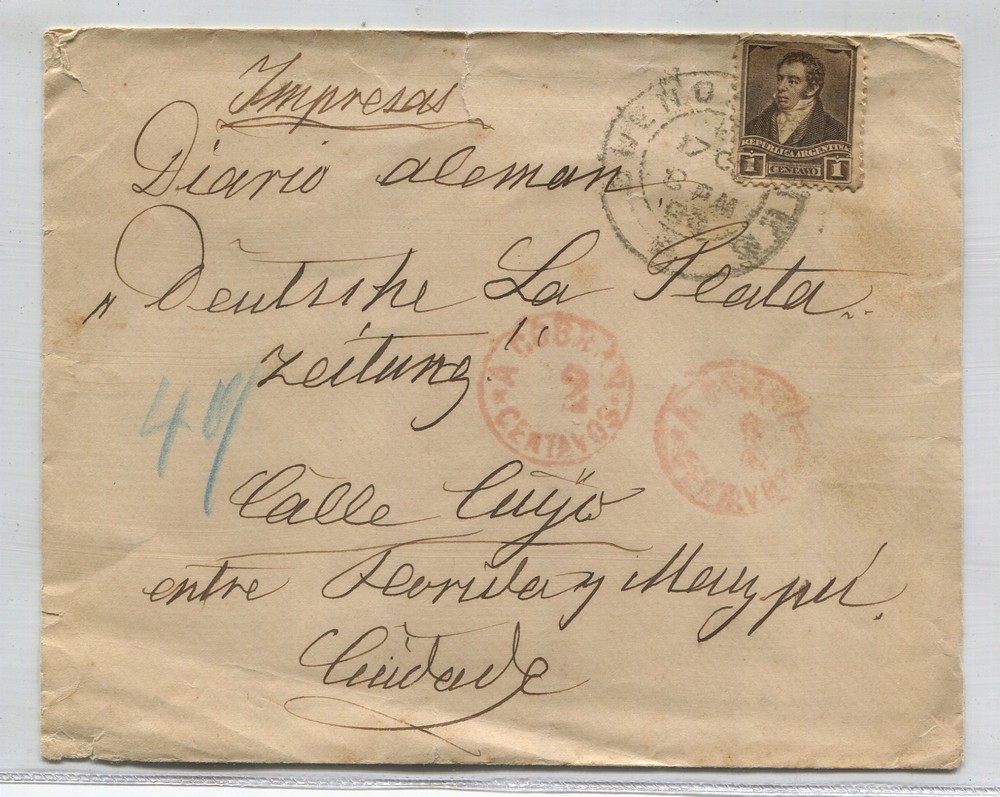 Impresas
Diario aleman
„Deutsche La Plata
Zeitung"
Calle Cuÿo
entre Florida y Mayzpú.
Ciüdade
49
REPUBLICA ARGENTINA
1 CENTAVO 1
BUENO
17
8 PM
A COBRAR
2
CENTAVOS
A
2
CENTAVOS